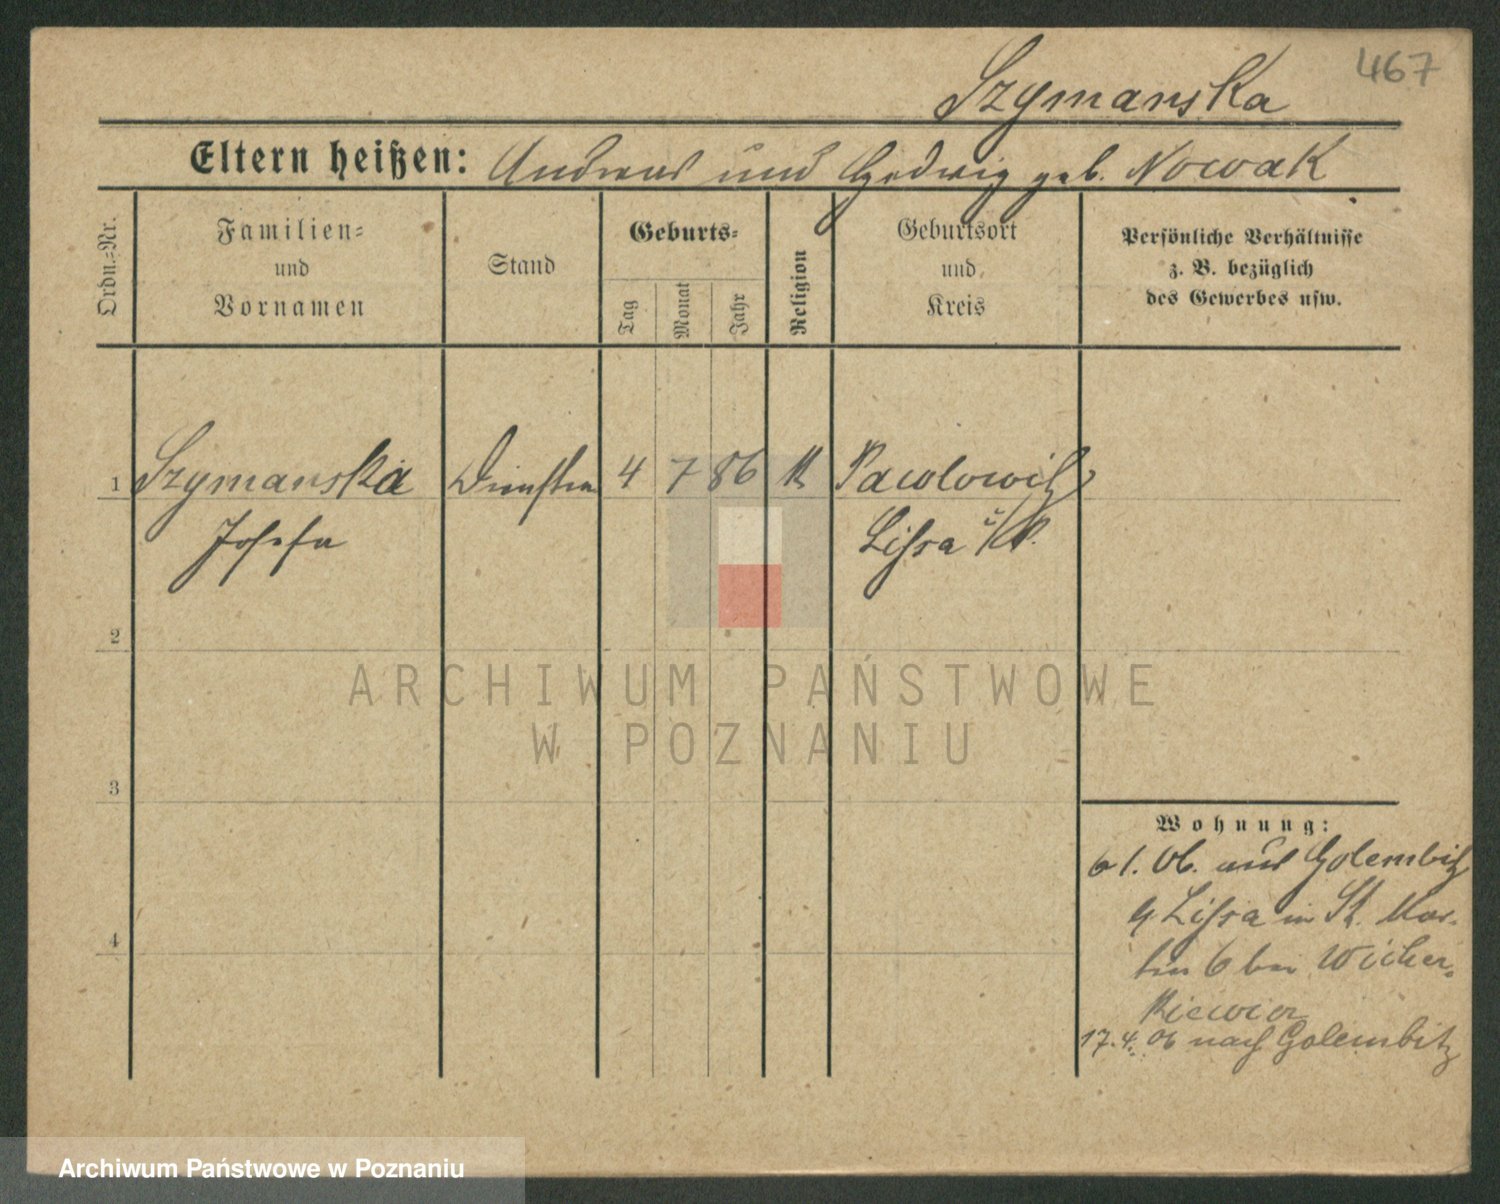 467
Szymanska
Eltern heißen: Andreas und Hedwig geb. Nowak
Ordn.-Nr.
Familien-
und
Vornamen
Stand
Geburts-
Tag
Monat
Jahr
Religion
Geburtsort
und
Kreis
Persönliche Verhältnisse
z. B. bezüglich
des Gewerbes usw.
1 Szymanska 4 7 86 K Pawlowitz
Josefa Lissa i/P.
2
3
4
Wohnung:
6 1. 06. aus Golembitz
Lissa in St. Mar-
tin 6 bei Wicher-
kiewicz
17.4. 06 nach Golembitz
ARCHIWUM PAŃSTWOWE
W POZNANIU
Archiwum Państwowe w Poznaniu